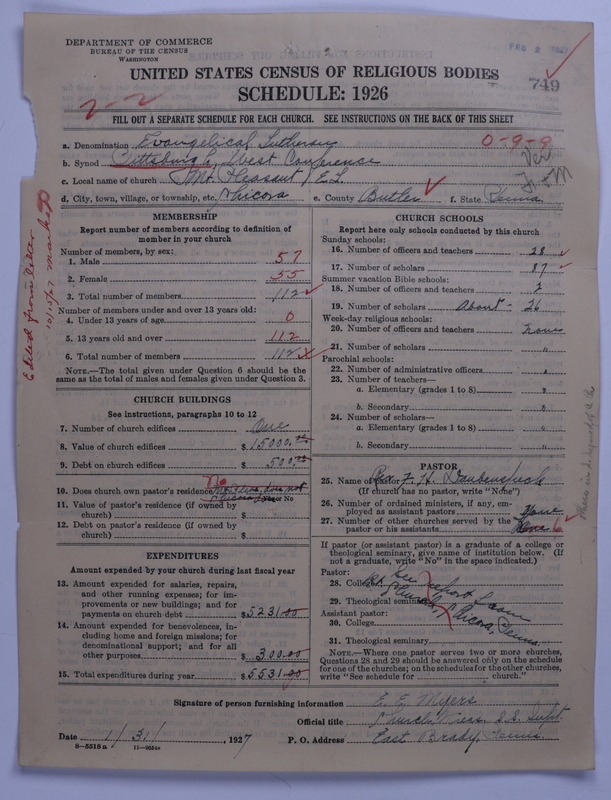 DEPARTMENT OF COMMERCE
BUREAU OF THE CENSUS
WASHINGTON
FEB 2 1927
UNITED STATES CENSUS OF RELIGIOUS BODIES
SCHEDULE: 1926
749
2-2
FILL OUT A SEPARATE SCHEDULE FOR EACH CHURCH. SEE INSTRUCTIONS ON THE BACK OF THIS SHEET
a. Denomination Evangelical Lutheran
0-9-9
b. Synod Pittsburgh, West Conference
c. Local name of church Mt. Pleasant E. L.
d. City, town, village, or township, etc. Chicora e. County Butler f. State Penna
MEMBERSHIP
Report number of members according to definition of member in your church
Number of members, by sex:
1. Male 57
2. Female 55
3. Total number of members 112
Number of members under and over 13 years old:
4. Under 13 years of age 0
5. 13 years old and over 112
6. Total number of members 112
NOTE.—The total given under Question 6 should be the same as the total of males and females given under Question 3.
CHURCH BUILDINGS
See instructions, paragraphs 10 to 12
7. Number of church edifices One
8. Value of church edifices $15000.00
9. Debt on church edifices $500.00
10. Does church own pastor's residence? No
or No
11. Value of pastor's residence (if owned by church) $
12. Debt on pastor's residence (if owned by church) $
EXPENDITURES
Amount expended by your church during last fiscal year
13. Amount expended for salaries, repairs, and other running expenses; for improvements or new buildings; and for payments on church debt $5231.00
14. Amount expended for benevolences, including home and foreign missions; for denominational support; and for all other purposes $300.00
15. Total expenditures during year $5531.00
CHURCH SCHOOLS
Report here only schools conducted by this church
Sunday schools:
16. Number of officers and teachers 28
17. Number of scholars 87
Summer vacation Bible schools:
18. Number of officers and teachers 2
19. Number of scholars About - 26
Week-day religious schools:
20. Number of officers and teachers none
21. Number of scholars "
Parochial schools:
22. Number of administrative officers
23. Number of teachers—
a. Elementary (grades 1 to 8)
b. Secondary
24. Number of scholars—
a. Elementary (grades 1 to 8)
b. Secondary
PASTOR
25. Name of pastor Rev. F. H. Daubenspeck
(If church has no pastor, write "None")
26. Number of ordained ministers, if any, employed as assistant pastors None
27. Number of other churches served by the pastor or his assistants 6
If pastor (or assistant pastor) is a graduate of a college or theological seminary, give name of institution below. (If not a graduate, write "No" in the space indicated.)
Pastor:
28. College See report from
29. Theological seminary Church, Chicora, Penna
Assistant pastor:
30. College
31. Theological seminary
NOTE.—Where one pastor serves two or more churches, Questions 28 and 29 should be answered only on the schedule for one of the churches; on the schedules for the other churches, write "See schedule for church."
Signature of person furnishing information E. E. Myers
Official title Church Treas. S.S. Supt.
Date 1/31/, 1927 P. O. Address East Brady, Penna.
8-5518a